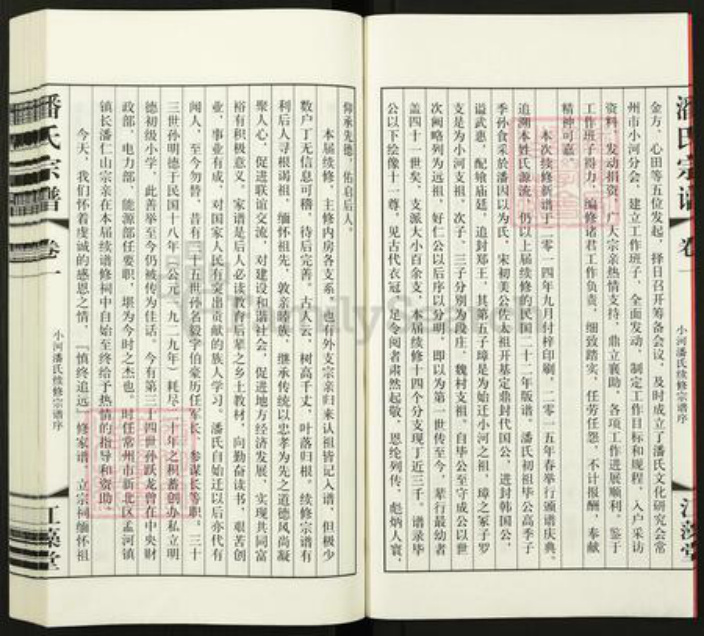 金方、心田等五位发起，择日召开筹备会议，及时成立了潘氏文化研究会常
州市小河分会，建立工作班子，全面发动，制定工作目标和规程，入户采访
资料，发动捐资，广大宗亲热情支持，鼎立襄助，各项工作进展顺利。鉴于
工作班子得力，编修诸君工作负责，细致踏实，任劳任怨，不计报酬，奉献
精神可嘉。
本次续修新谱于二零一四年九月付梓印刷，二零一五年春举行颁谱庆典。
追溯本姓氏源流，仍以上届续修的民国二十二年版谱。潘氏初祖毕公高季子
季孙食采於潘因以为氏，宋初美公佐太祖开基定鼎封代国公，进封韩国公，
谥武惠，配飨庙廷，追封郑王，其第五子璋是为始迁小河之祖，璋之冢子罗
支是为小河支祖，次子、三子分别为段庄、魏村支祖。自毕公至守成公以世
次阙略列为远祖，好仁公以后序以分明，即以为第一世传至今，辈行最幼者
盖四十一世矣，支派大小百余支，本届续修十四个分支现丁近三千。谱录毕
公以下绘像十一尊，见古代衣冠，足令阅者肃然起敬，恩纶列传，彪炳人寰，
潘氏宗谱
卷一
小河潘氏续修宗谱序
江藻堂
仰承先德，佑启后人。
本届续修，主修内房各支系，也有外支宗亲归来认祖皆记入谱，但极少
数户丁无信息可稽，待后完善。古人云，树高千丈，叶落归根。续修宗谱有
利后人寻根谒祖，缅怀祖先，敦亲睦族，继承传统以忠孝为先之道德风尚凝
聚人心，促进联谊交流，对建设和谐社会，促进地方经济发展，实现共同富
裕有积极意义。家谱是后人必读教育后辈之乡土教材，向勤奋读书，艰苦创
业，事业有成，对国家人民有突出贡献的族人学习。潘氏自始迁以后亦代有
闻人，至今勿替，昔有三十五世孙名毅字伯豪历任军长、参谋长等职。三十
三世孙明德于民国十八年（公元一九二九年）耗尽三十年之积蓄创办私立明
德初级小学，此善举至今仍被传为佳话。今有第三十四世孙跃龙曾在中央财
政部、电力部、能源部任要职，堪为今时之杰也。时任常州市新北区孟河镇
镇长潘仁山宗亲在本届续谱修祠中自始至终给予热情的指导和资助。
今天，我们怀着虔诚的感恩之情，『慎终追远』修家谱、立宗祠缅怀祖
潘氏宗谱
卷一
小河潘氏续修宗谱序
江藻堂
FamilySearch